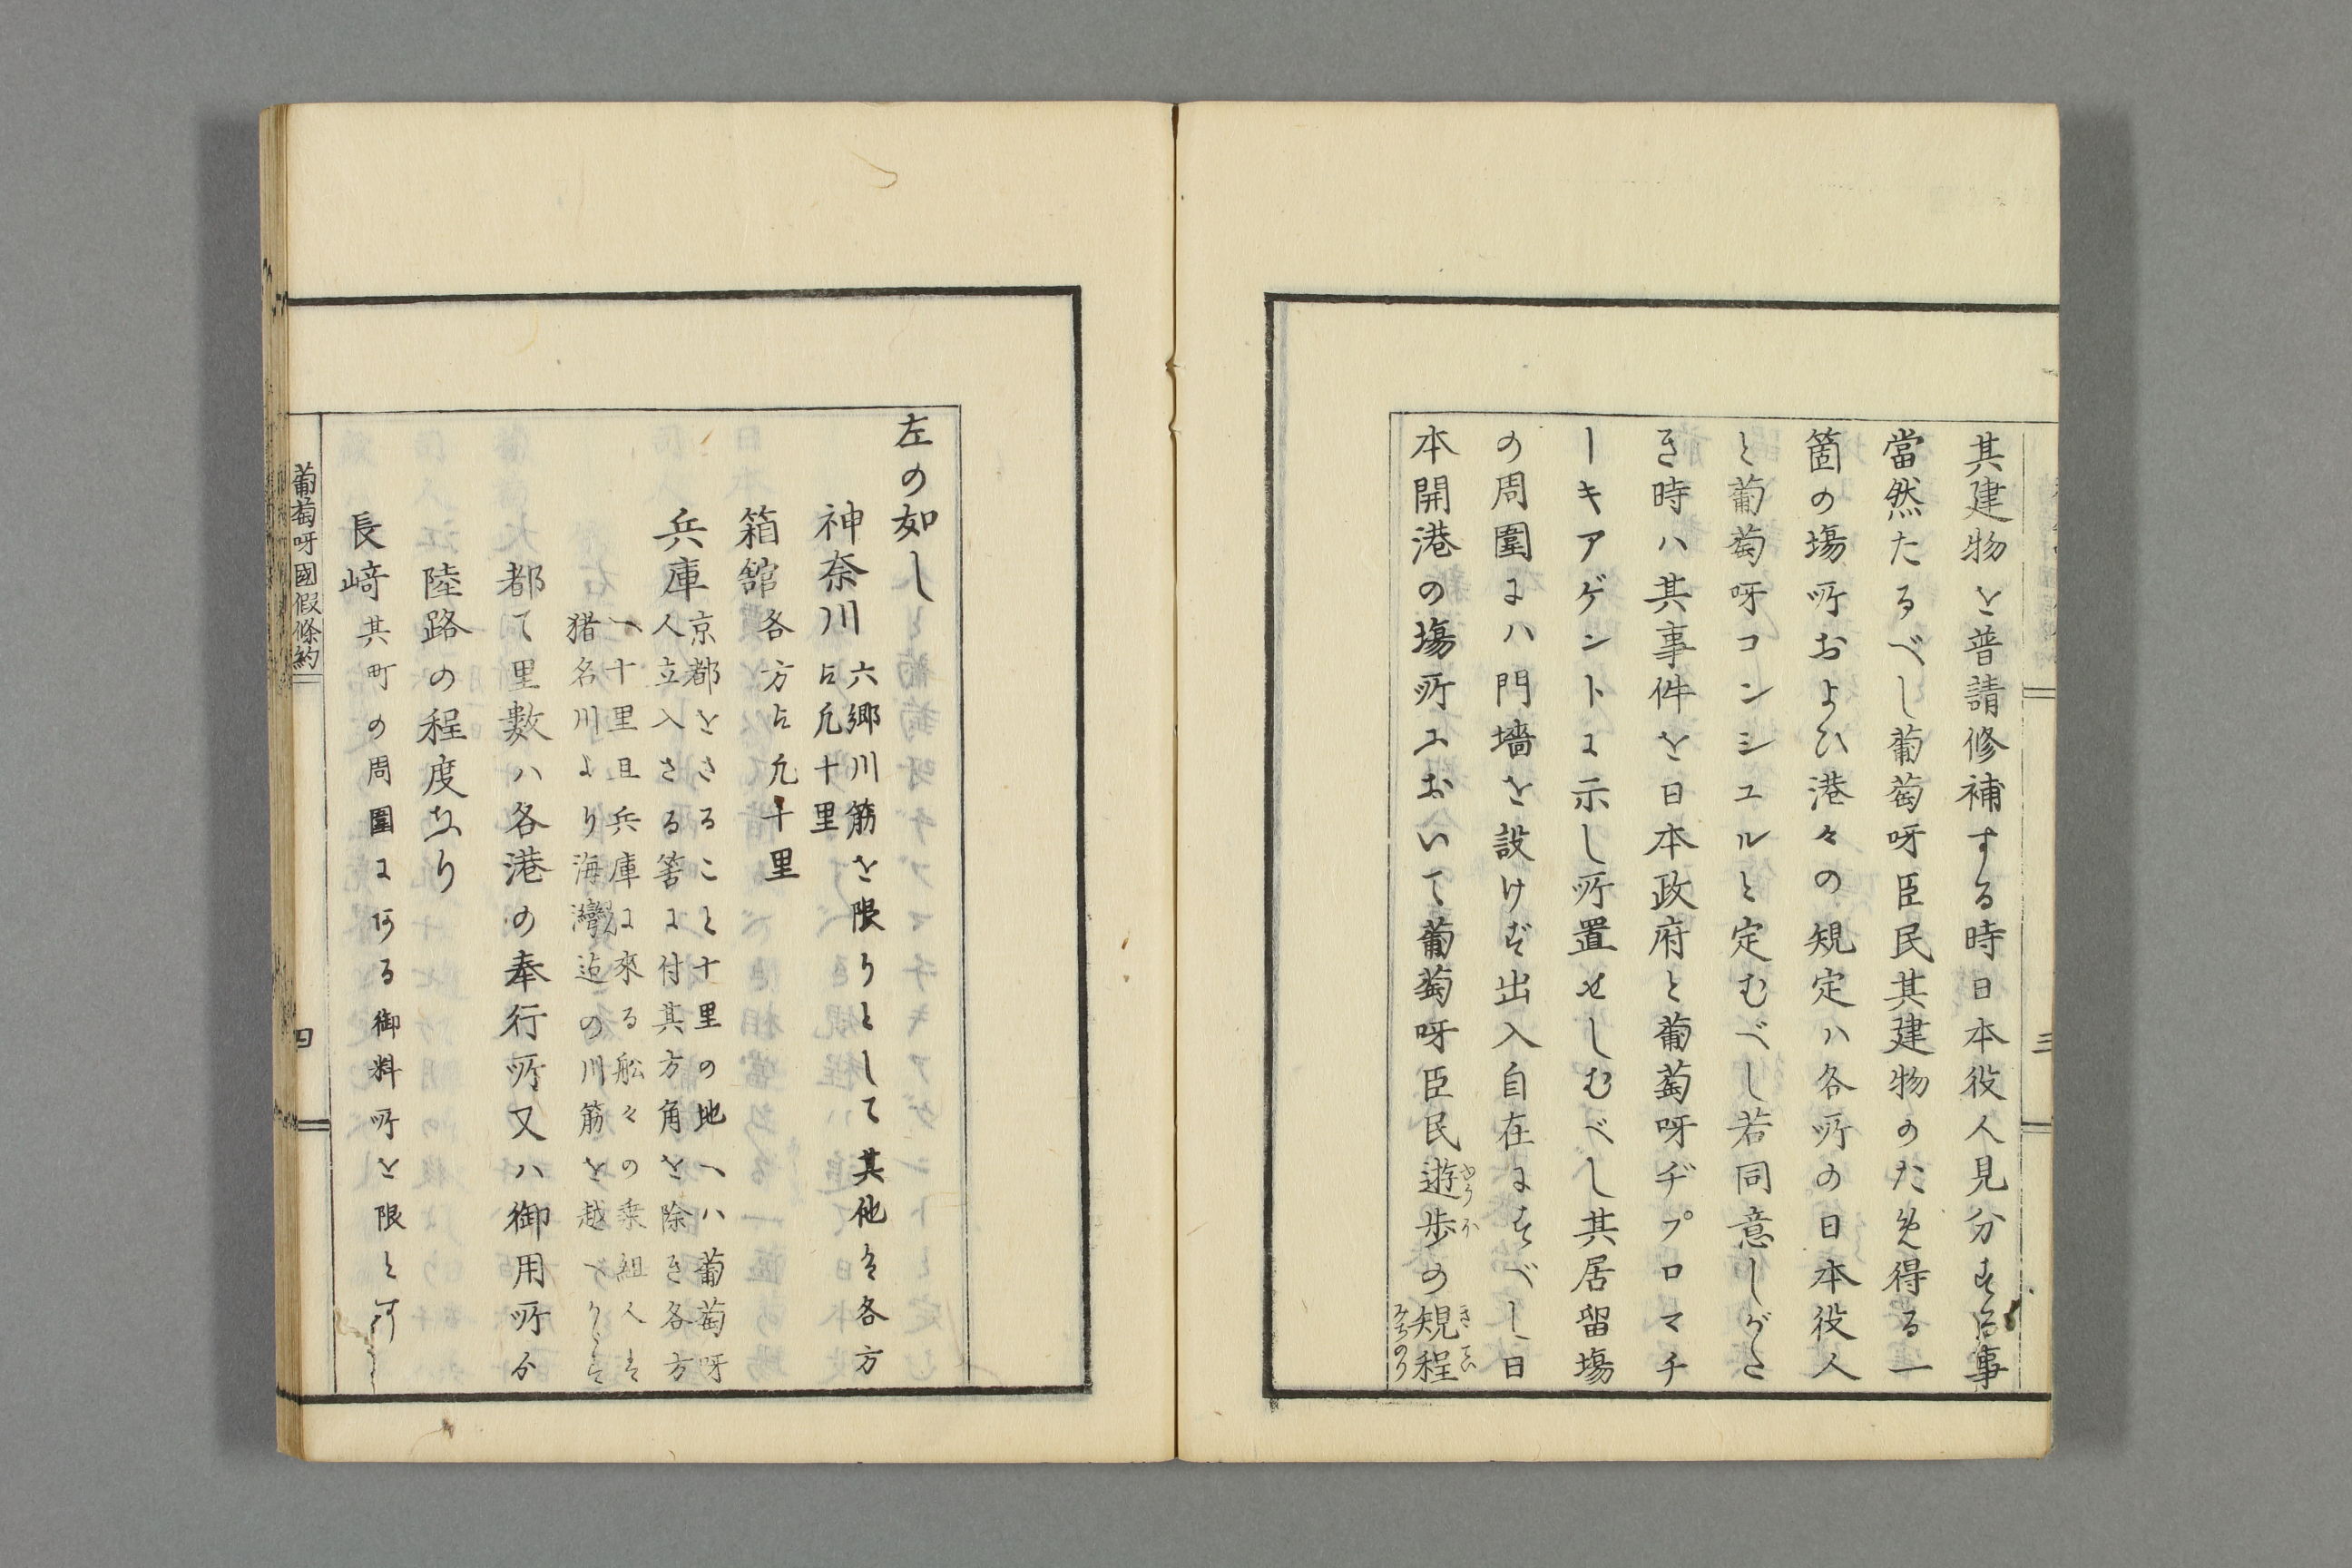 其建物を普請修補する時日本役人見分する事
當然たるべし葡萄呀臣民其建物のため得る一
箇の塲所および港々の規定ハ各所の日本役人
と葡萄呀コンシユルと定むべし若同意しがた
き時ハ其事件を日本政府と葡萄呀ヂプロマチ
ーキアゲントに示し所置せしむべし其居留塲
の周圍にハ門墻を設けず出入自在にすべし日
本開港の塲所において葡萄呀臣民遊歩の規程
三
左の如し
神奈川 六郷川筋を限りとして其他は各方
へ凡十里
箱舘 各方へ凡十里
兵庫 京都をさること十里の地へハ葡萄呀
人立入さる筈に付其方角を除き各方
へ十里且兵庫に來る舩々の乗組人は
猪名川より海灣迄の川筋を越べからず
都て里數ハ各港の奉行所又ハ御用所か
陸路の程度なり
長﨑 其町の周圍にある御料所を限とす
葡萄呀國假條約
四